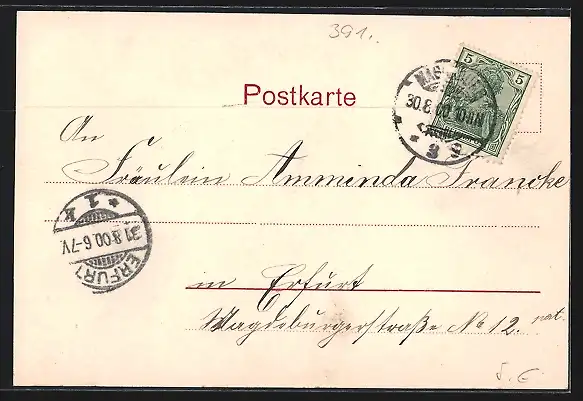 391.
5 5
30.8.00 10-11N
* 3 g
Postkarte
An
Fräulein Amminda Francke
* 1 k
31.8.00.6-7V.
ERFURT
in Erfurt
Magdeburgerstraße No 12.